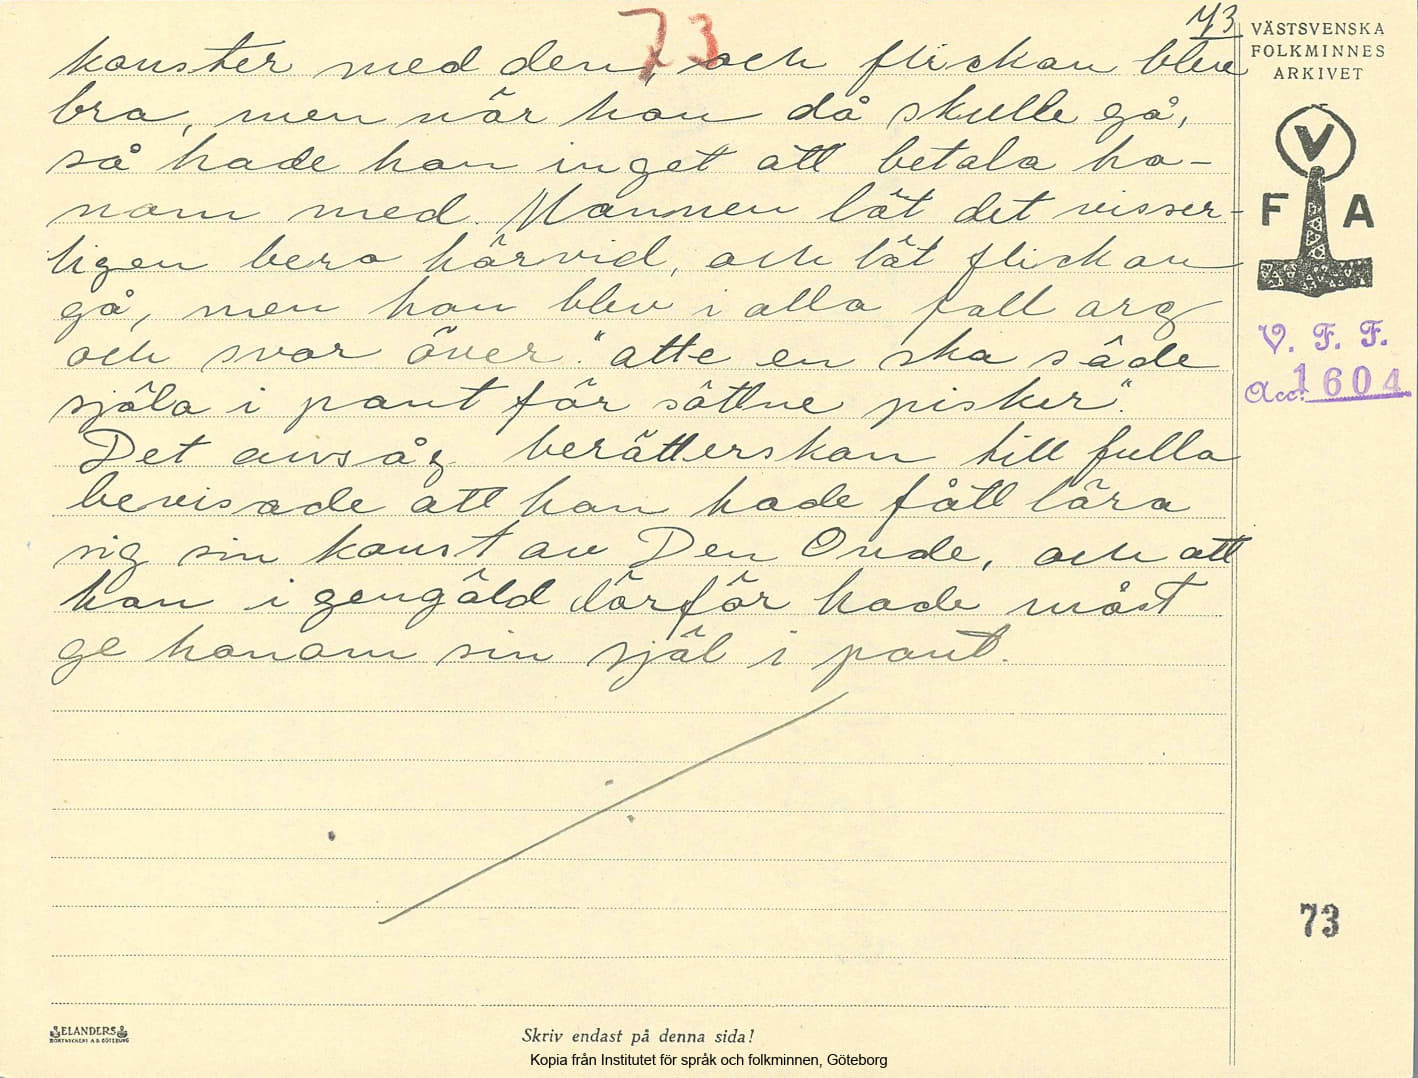 73
73
konster med den, och flickan blev
bra, men när hon då skulle gå,
så hade hon inget att betala ho-
nom med. Mannen lät det visser-
ligen bero härvid, och lät flickan
gå, men han blev i alla fall arg
och svor över "atte en ska säde
själa i pant för sättne pisker".
Det ansåg berätterskan till fulla
bevisade att han hade fått lära
sig sin konst av Den Onde, och att
han i gengäld därför hade måst
ge honom sin själ i pant.
VÄSTSVENSKA
FOLKMINNES
ARKIVET
V
F A
V. F. F.
Acc. 1604
73
ELANDERS
BOKTRYCKERI A.B. GÖTEBORG
Skriv endast på denna sida!
Kopia från Institutet för språk och folkminnen, Göteborg